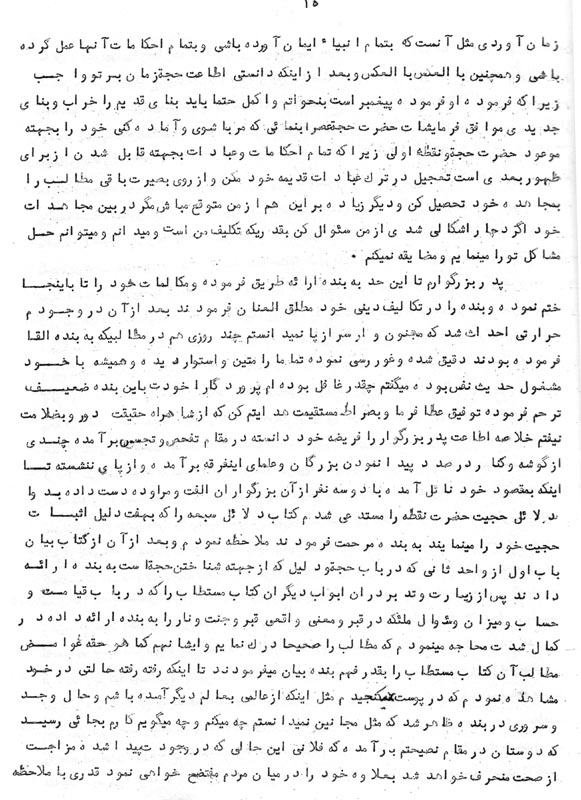 ۱۵
زمان آوردی مثل آنست که بتمام انبیاء ایمان آورده باشی و بتمام احکامات آنها عمل کرده
باشی و همچنین بالعکس بالعکس و بعد از اینکه دانستی اطاعت حجة زمان بر تو واجب
زیرا که فرموده او فرموده پیغمبر است بنحو اتم و اکمل حتما باید بنای قدیم را خراب و بنای
جدیدی موافق فرمایشات حضرت حجة عصر بنمائی که مربا شوی و آماده کنی خود را بجهته
موعود حضرت حجة و نقطه اولی زیرا که تمام احکامات و عبادات بجهته قابل شدن از برای
ظهور بعدی است تعجیل در ترک عبادات قدیمه خود مکن و از روی بصیرت باقی مطالب را
بمجاهده خود تحصیل کن و دیگر زیاده بر این هم از من متوقع مباش مگر در بین مجاهدات
خود اگر دچار اشکالی شدی از من سئوال کن بقدریکه تکلیف من است و میدانم و میتوانم حل
مشاکل تو را مینمایم و مضایقه نمیکنم .
پدر بزرگوارم تا این حد به بنده ارائه طریق فرموده و مکالمات خود را تا باینجا
ختم نموده و بنده را در تکالیف دینی خود مطلق العنان فرمودند بعد از آن در وجودم
حرارتی احداث شد که مجنون وار سر از پا نمیدانستم چند روزی هم در مطالبیکه به بنده القا
فرموده بودند دقیق شده و غوررسی نموده تماما را متین و استوار دیده و همیشه با خود
مشغول حدیث نفس بوده میگفتم چقدر غافل بوده ام پروردگارا خودت باین بنده ضعیف
ترحم فرموده توفیق عطا فرما و بصراط مستقیمت هدایتم کن که از شاهراه حقیقت دور و بضلالت
نیفتم خلاصه اطاعت پدر بزرگوار را فریضه خود دانسته در مقام تفحص و تجسس برآمده چندی
از گوشه و کنار در صدد پیدا نمودن بزرگان و علمای اینفرقه برآمده و از پای ننشسته تا
اینکه بمقصود خود نائل آمده با دو سه نفر از آن بزرگواران الفت و مراوده دست داده بدوا
دلائل حجیت حضرت نقطه را مستدعی شدم کتاب دلائل سبعه را که بهفت دلیل اثبات
حجیت خود را مینمایند به بنده مرحمت فرمودند ملاحظه نمودم و بعد از آن از کتاب بیان
باب اول از واحد ثانی که در باب حجة و دلیل که از جهته شناختن حجة است به بنده ارائه
دادند پس از زیارت و تدبر در آن ابواب دیگر آن کتاب مستطاب را که در باب قیامت و
حساب و میزان و سئوال ملئکه در قبر و معنی واقعی قبر و جنت و نار را به بنده ارائه داده در
کمال شدت محاجه مینمودم که مطالب را صحیحا درک نمایم و ایشانهم کما هو حقه غوامض
مطالب آن کتاب مستطاب را بقدر فهم بنده بیان میفرمودند تا اینکه رفته رفته حالتی در خود
مشاهده نمودم که در پوست نمیگنجیدم مثل اینکه از عالمی بعالم دیگر آمده باشم و حال وجد
و سروری در بنده ظاهر شد که مثل مجانین نمیدانستم چه میکنم و چه میگویم کارم بجائی رسید
که دوستان در مقام نصیحتم برآمده که فلانی این حالی که در وجودت پیدا شده مزاجت
از صحت منحرف خواهد شد بعلاوه خود را در میان مردم مفتضح خواهی نمود قدری با ملاحظه